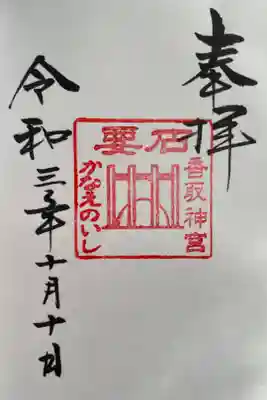 奉拝
要石
香取神宮
かなえのいし
令和三年十月十日